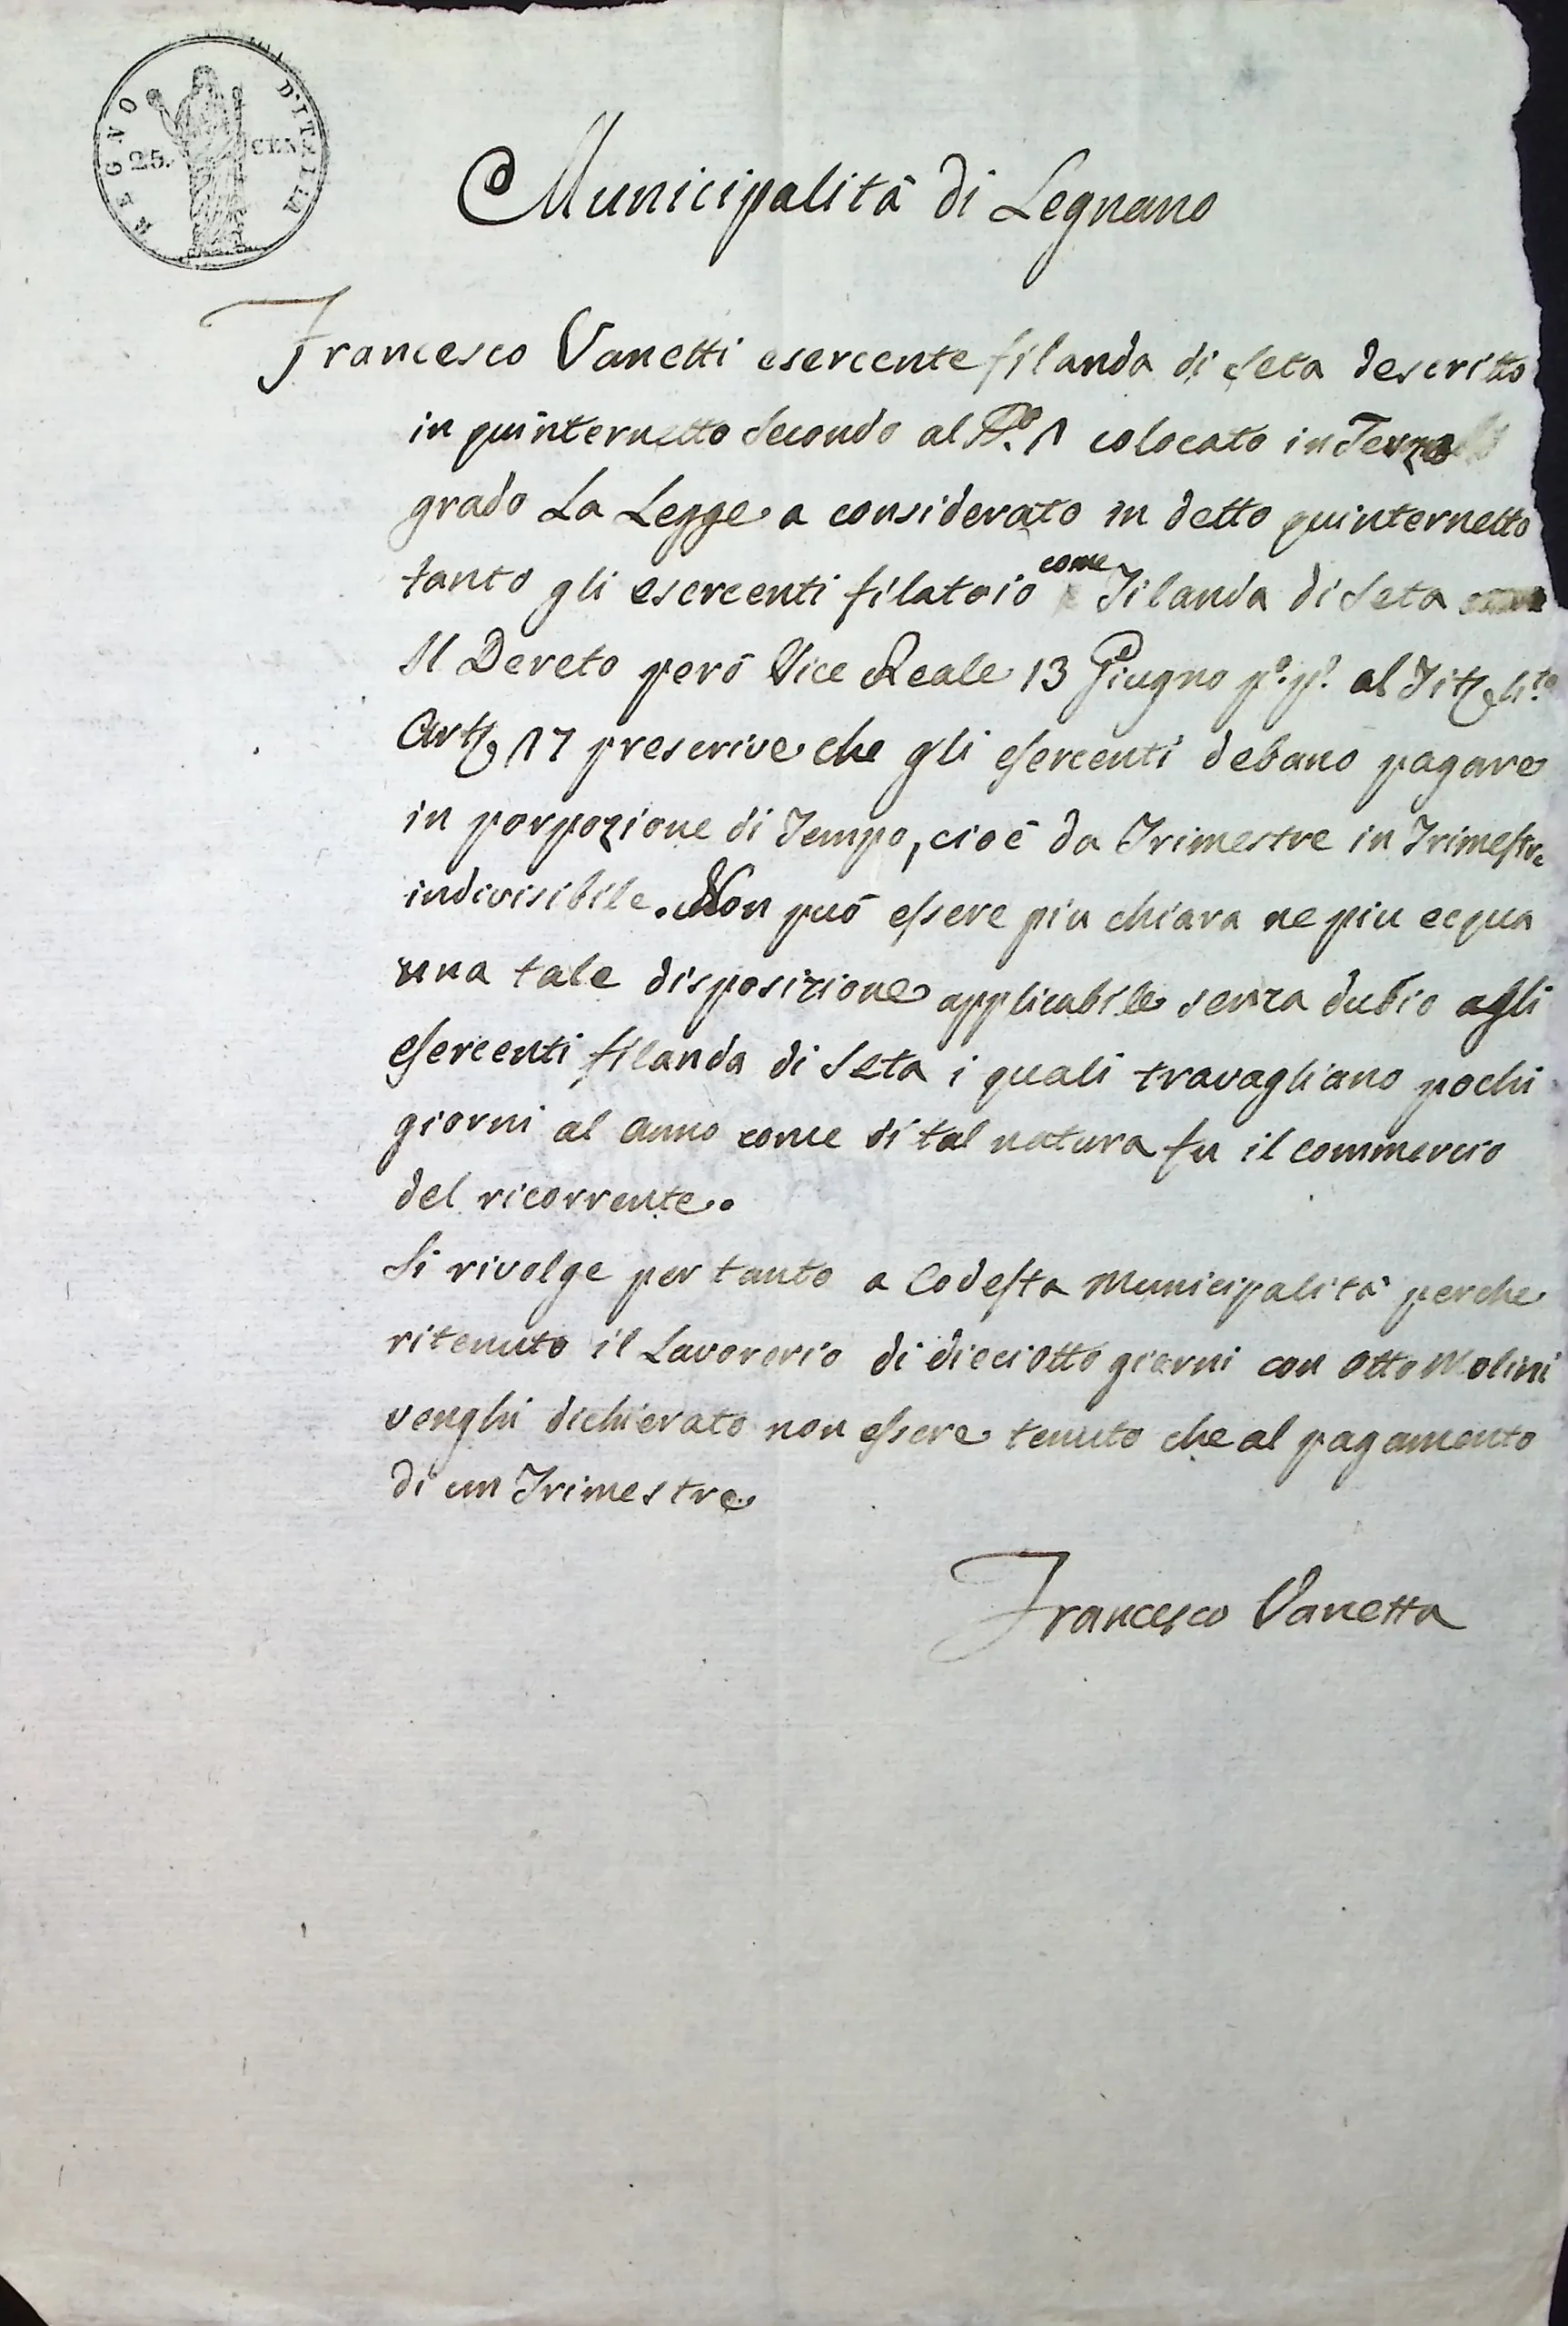 REGNO D'ITALIA
25. CEN
Municipalità di Legnano
Francesco Vanetti esercente filanda di seta descritto
in quinternetto secondo al N.º 1 colocato in Terzo
grado La Legge a considerato in detto quinternetto
tanto gli esercenti filatoio come Filanda di Seta
Il Dereto però Vice Reale 13 Giugno p.º p.º al
Art. 17 prescrive che gli esercenti debano pagare
in porpozione di Tempo, cioè da Trimestre in Trimestre
indivisibile. Non può essere piu chiara ne piu ecqua
una tale disposizione applicabile senza dubio agli
esercenti filanda di Seta i quali travagliano pochi
giorni al anno come di tal natura fu il commercio
del ricorrente.
Si rivolge per tanto a Codesta Municipalità perche
ritenuto il Lavorerio di dieciotto giorni con otto Molini
venghi dichierato non essere tenuto che al pagamento
di un Trimestre
Francesco Vanetta